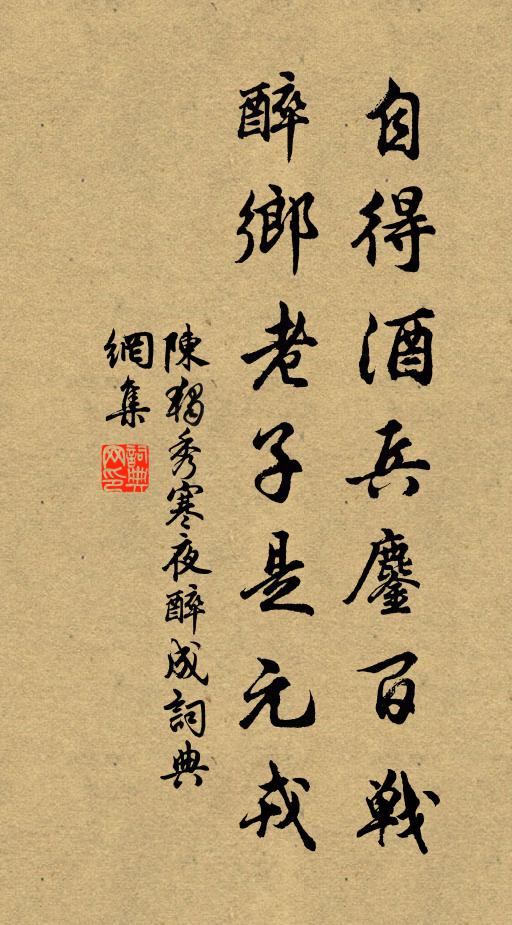 自得酒兵鏖百戰
醉鄉老子是元戎
陳獨秀寒夜醉成詞典
網集
詞典網印